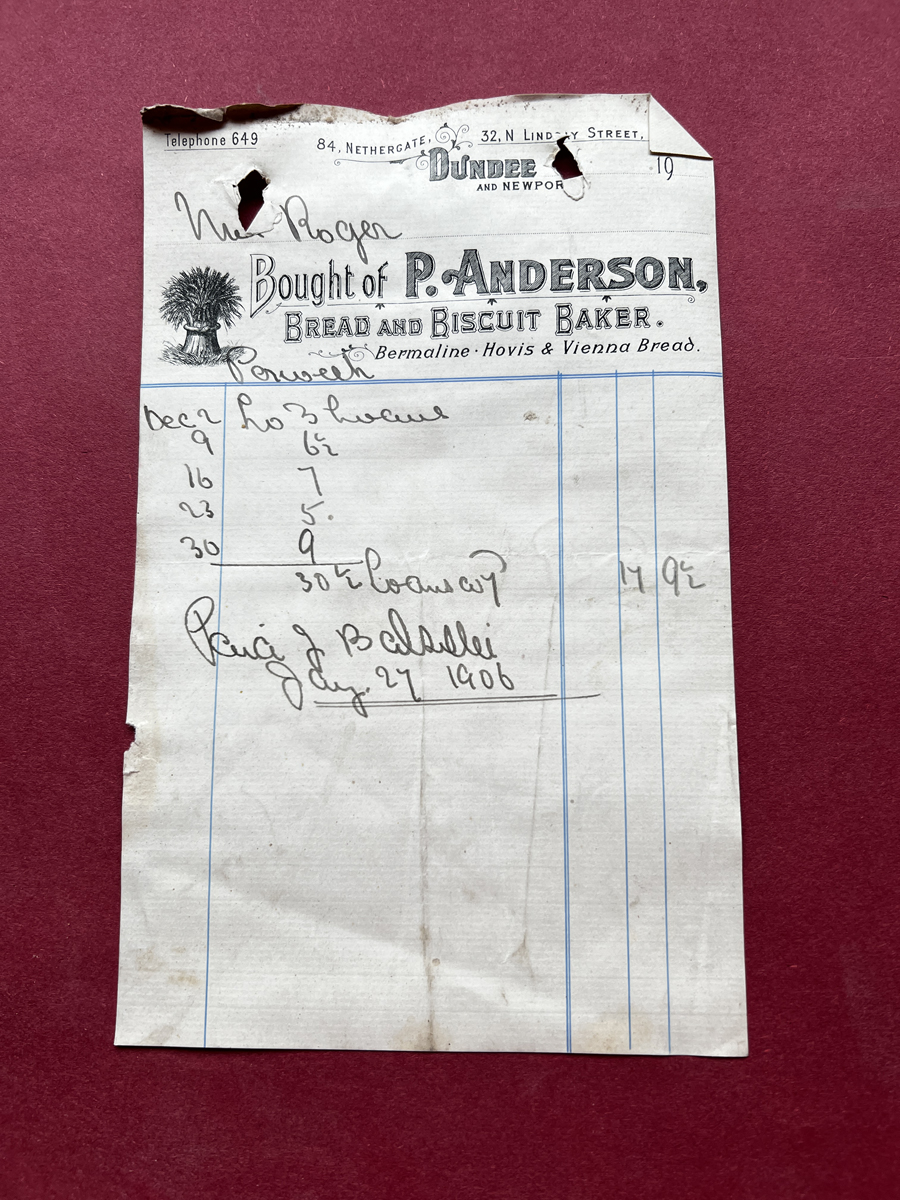 Telephone 649
84, NETHERGATE, 32, N LINDSAY STREET,
DUNDEE 19
AND NEWPOR
Roger
Bought of P. ANDERSON,
BREAD AND BISCUIT BAKER.
Bermaline · Hovis & Vienna Bread.
Dec 2 To 3 Loaves
9 6½
16 7
23 5.
30 9
30½ Loaves 17 9½
Jany. 27 1906